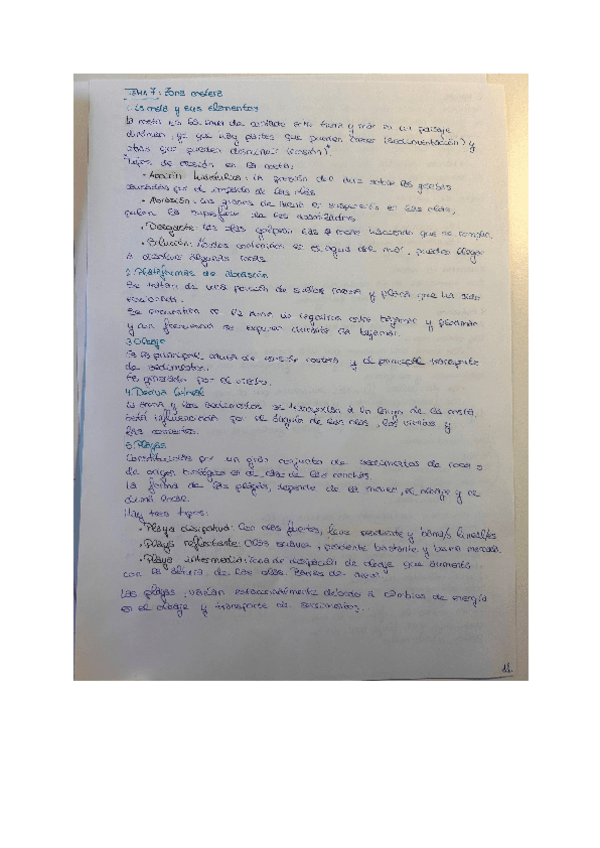 Tema 7: Zona costera
1. La costa y sus elementos
La costa es la zona de contacto entre tierra y mar es un paisaje
dinámico, ya que hay partes que pueden crecer (sedimentación) y
otras que pueden disminuir (erosión).
Tipos de erosión en la costa:
· Acción hidráulica: la presión del aire sobre las grietas
causadas por el impacto de las olas.
· Abrasión: los granos de arena en suspensión en las olas,
pulen la superficie de los acantilados.
· Desgaste: las olas golpean las haciendo que se rompan.
· Disolución: contenidos en el agua del mar, pueden llegar
a disolver algunas rocas.
2. Plataformas de abrasión
Se tratan de una porción de suelo rocosa y plana que ha sido
erosionada.
Se encuentra en la zona entre bajamar y pleamar
y con frecuencia se exponen durante la bajamar.
3. Oleaje
Es la principal de erosión costera y el principal transporte
de sedimentos.
Es generado por el viento.
4. Deriva litoral
La arena y los sedimentos se transportan a lo largo de la costa,
está influenciada por el ángulo de las olas, los vientos y
las corrientes.
5. Playas
Constituidas por un gran conjunto de sedimentos de roca o
de origen biológico es el caso de las conchas.
La forma de las playas, depende de la marea, el oleaje y el
Hay tres tipos:
· Playa disipativa: Con olas fuertes, leve pendiente y lineales
· Playa reflectante: Olas suaves, pendiente bastante y marcada.
· Playa intermedia: zona de de oleaje que aumenta
con la altura de las olas. Bancos de arena
Las playas, varían estacionalmente debido a cambios de energía
en el oleaje y transporte de sedimentos.